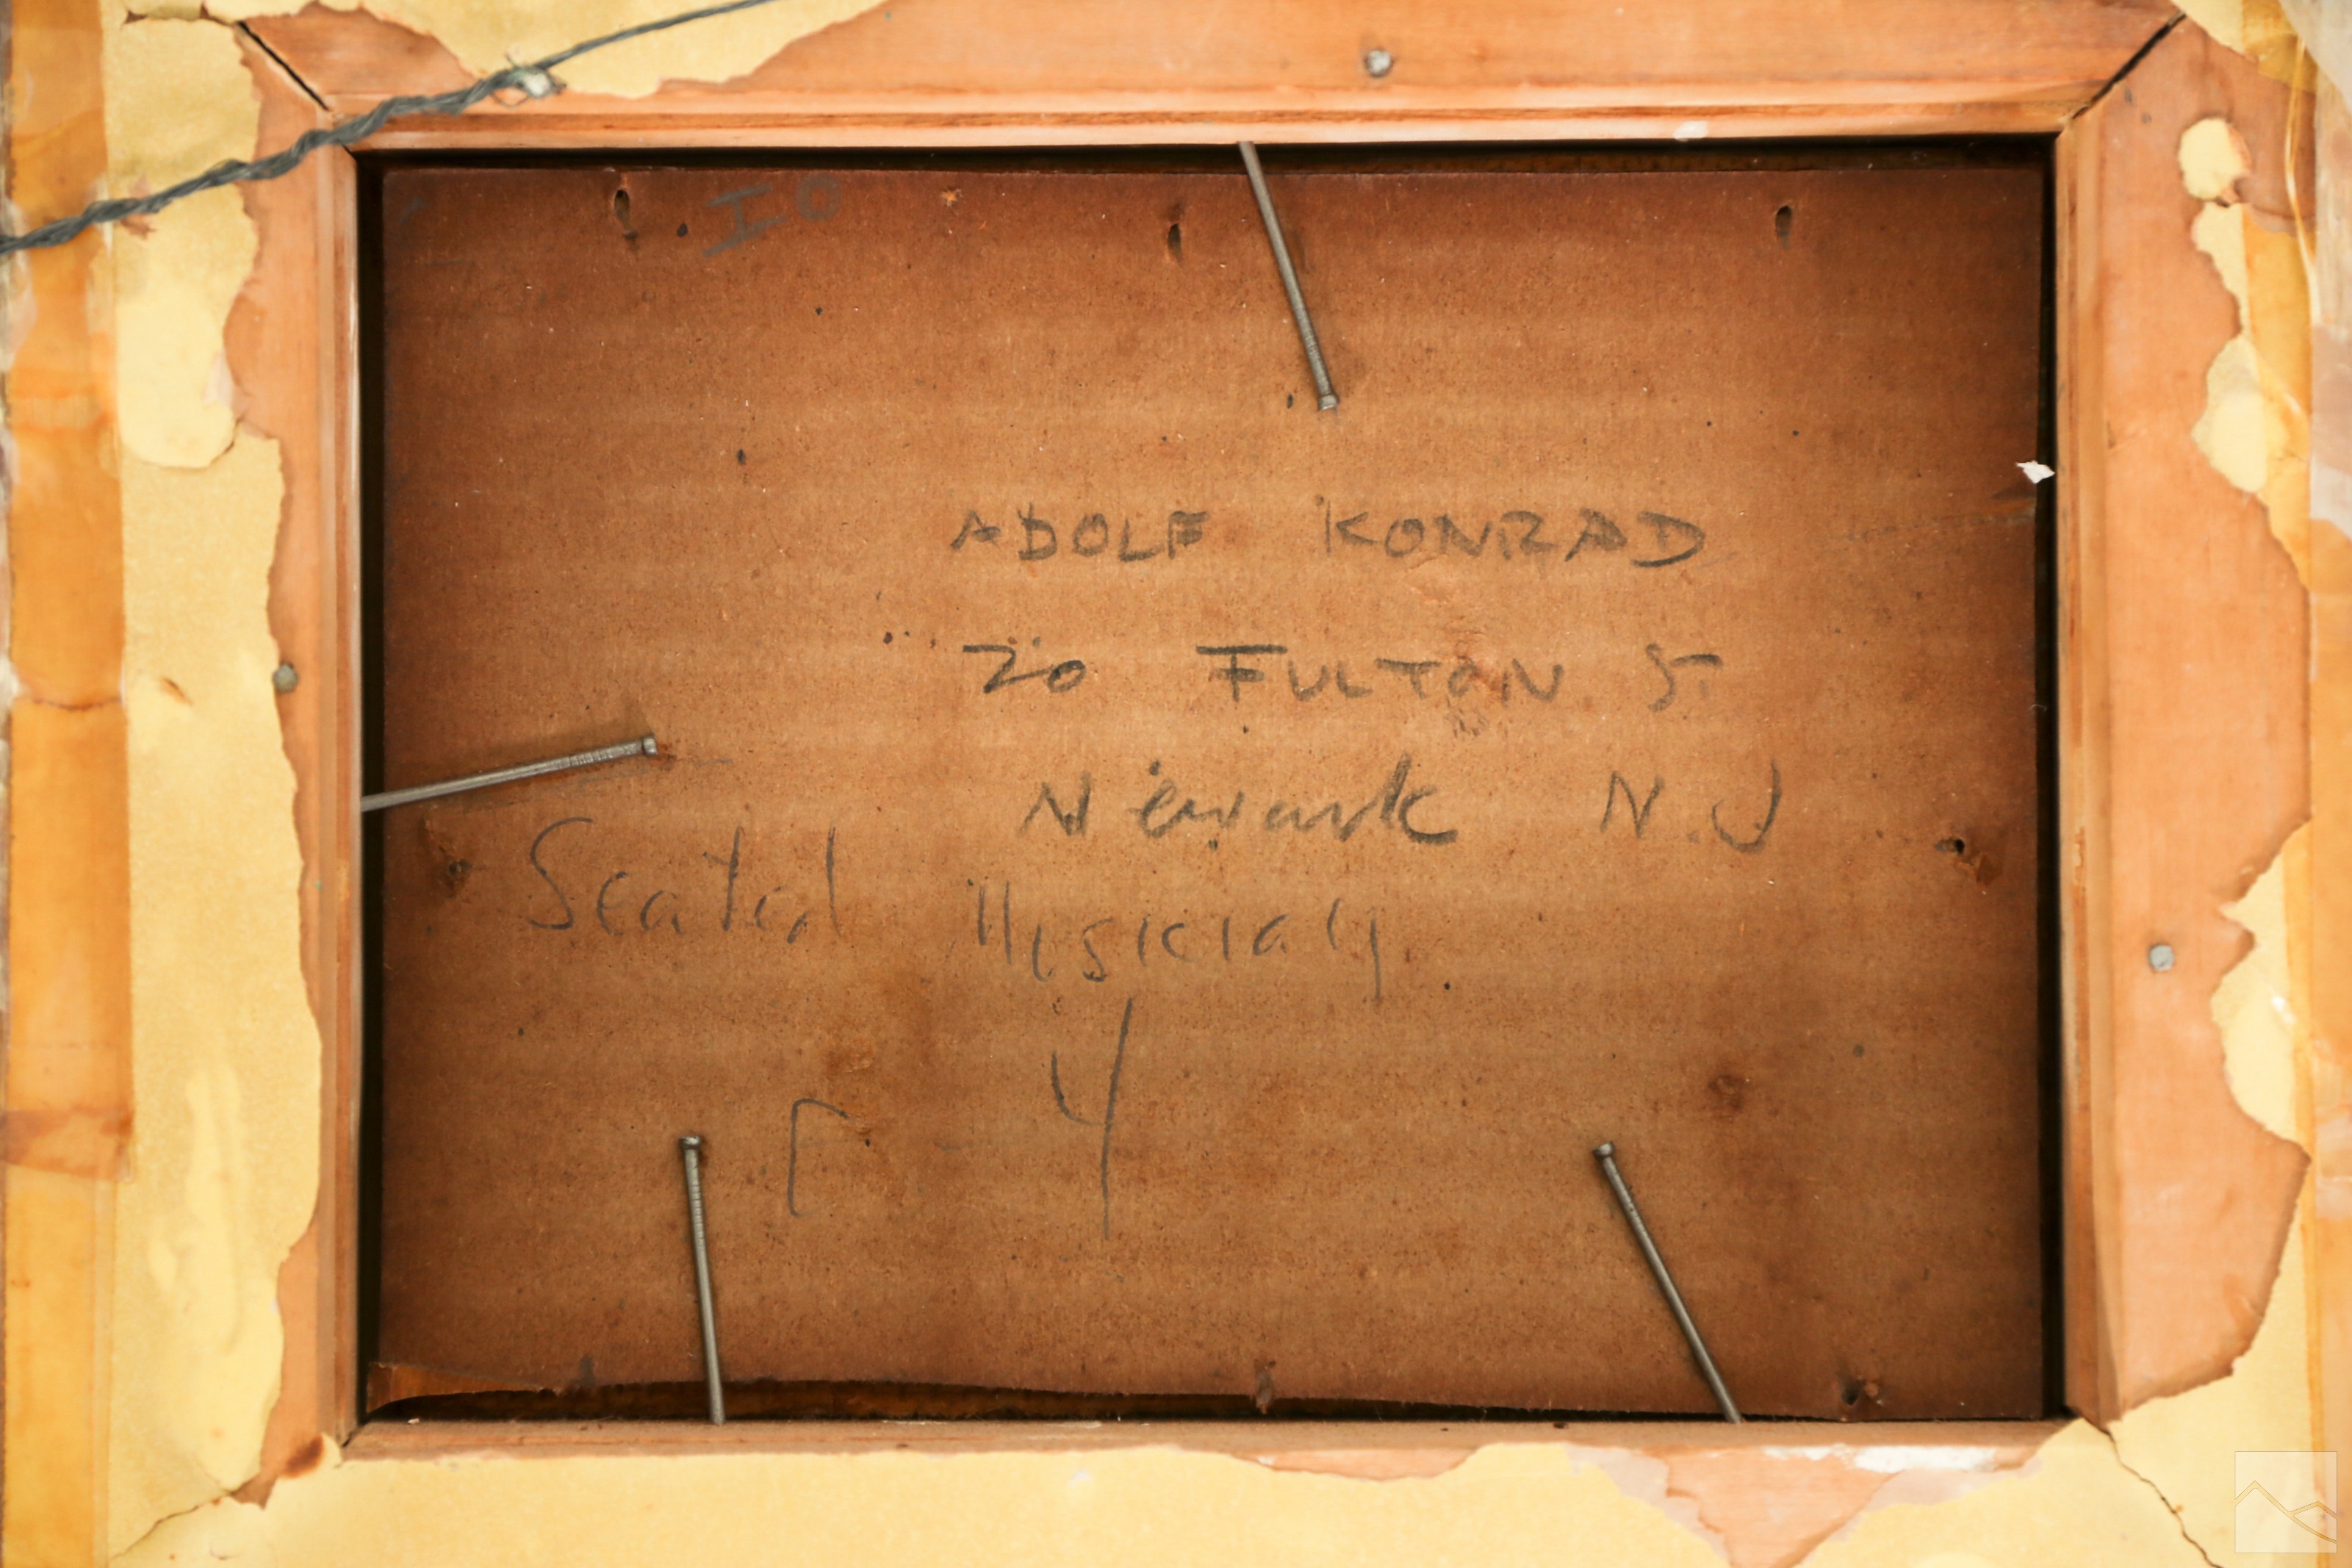 IO
ADOLF KONRAD
20 FULTON ST
Newark N.J
Seated Musician
F - 4